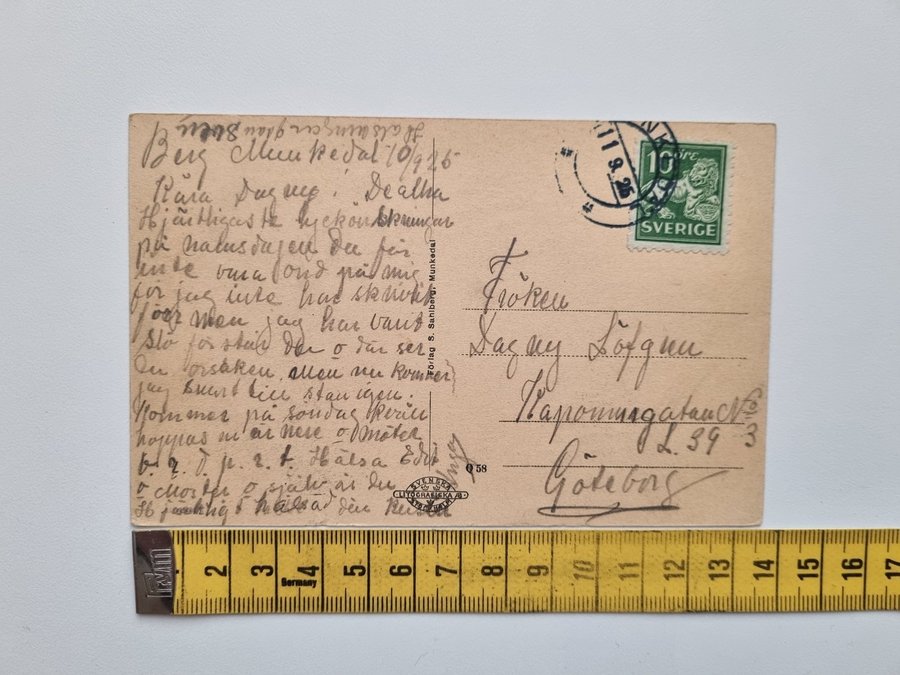 Hälsningar från Sven
Berg Munkedal 10/9 25
Kära Dagny!
Hjärtligaste lyckönskningar
på namsdagen du får
inte vara ond på mig
för jag inte har skrivit
förr men jag har varit
förstår du o där ser
du orsaken. Men nu kommer
jag snart till stan igen.
Kommer på söndag kväll
hoppas ni är nere o möter
Hälsa Edit
o moster o själv är du
Hjärtligt hälsad
Förlag S. Sahlberg, Munkedal
Q 58
SVENSKA
LITOGRAFISKA AB
11 9. 25
10 ÖRE
SVERIGE
Fröken
Dagny Löfgren
Kaponiergatan No 6
L. 39 3
Göteborg
Germany
2 3 4 5 6 7 8 9 10 11 12 13 14 15 16 17